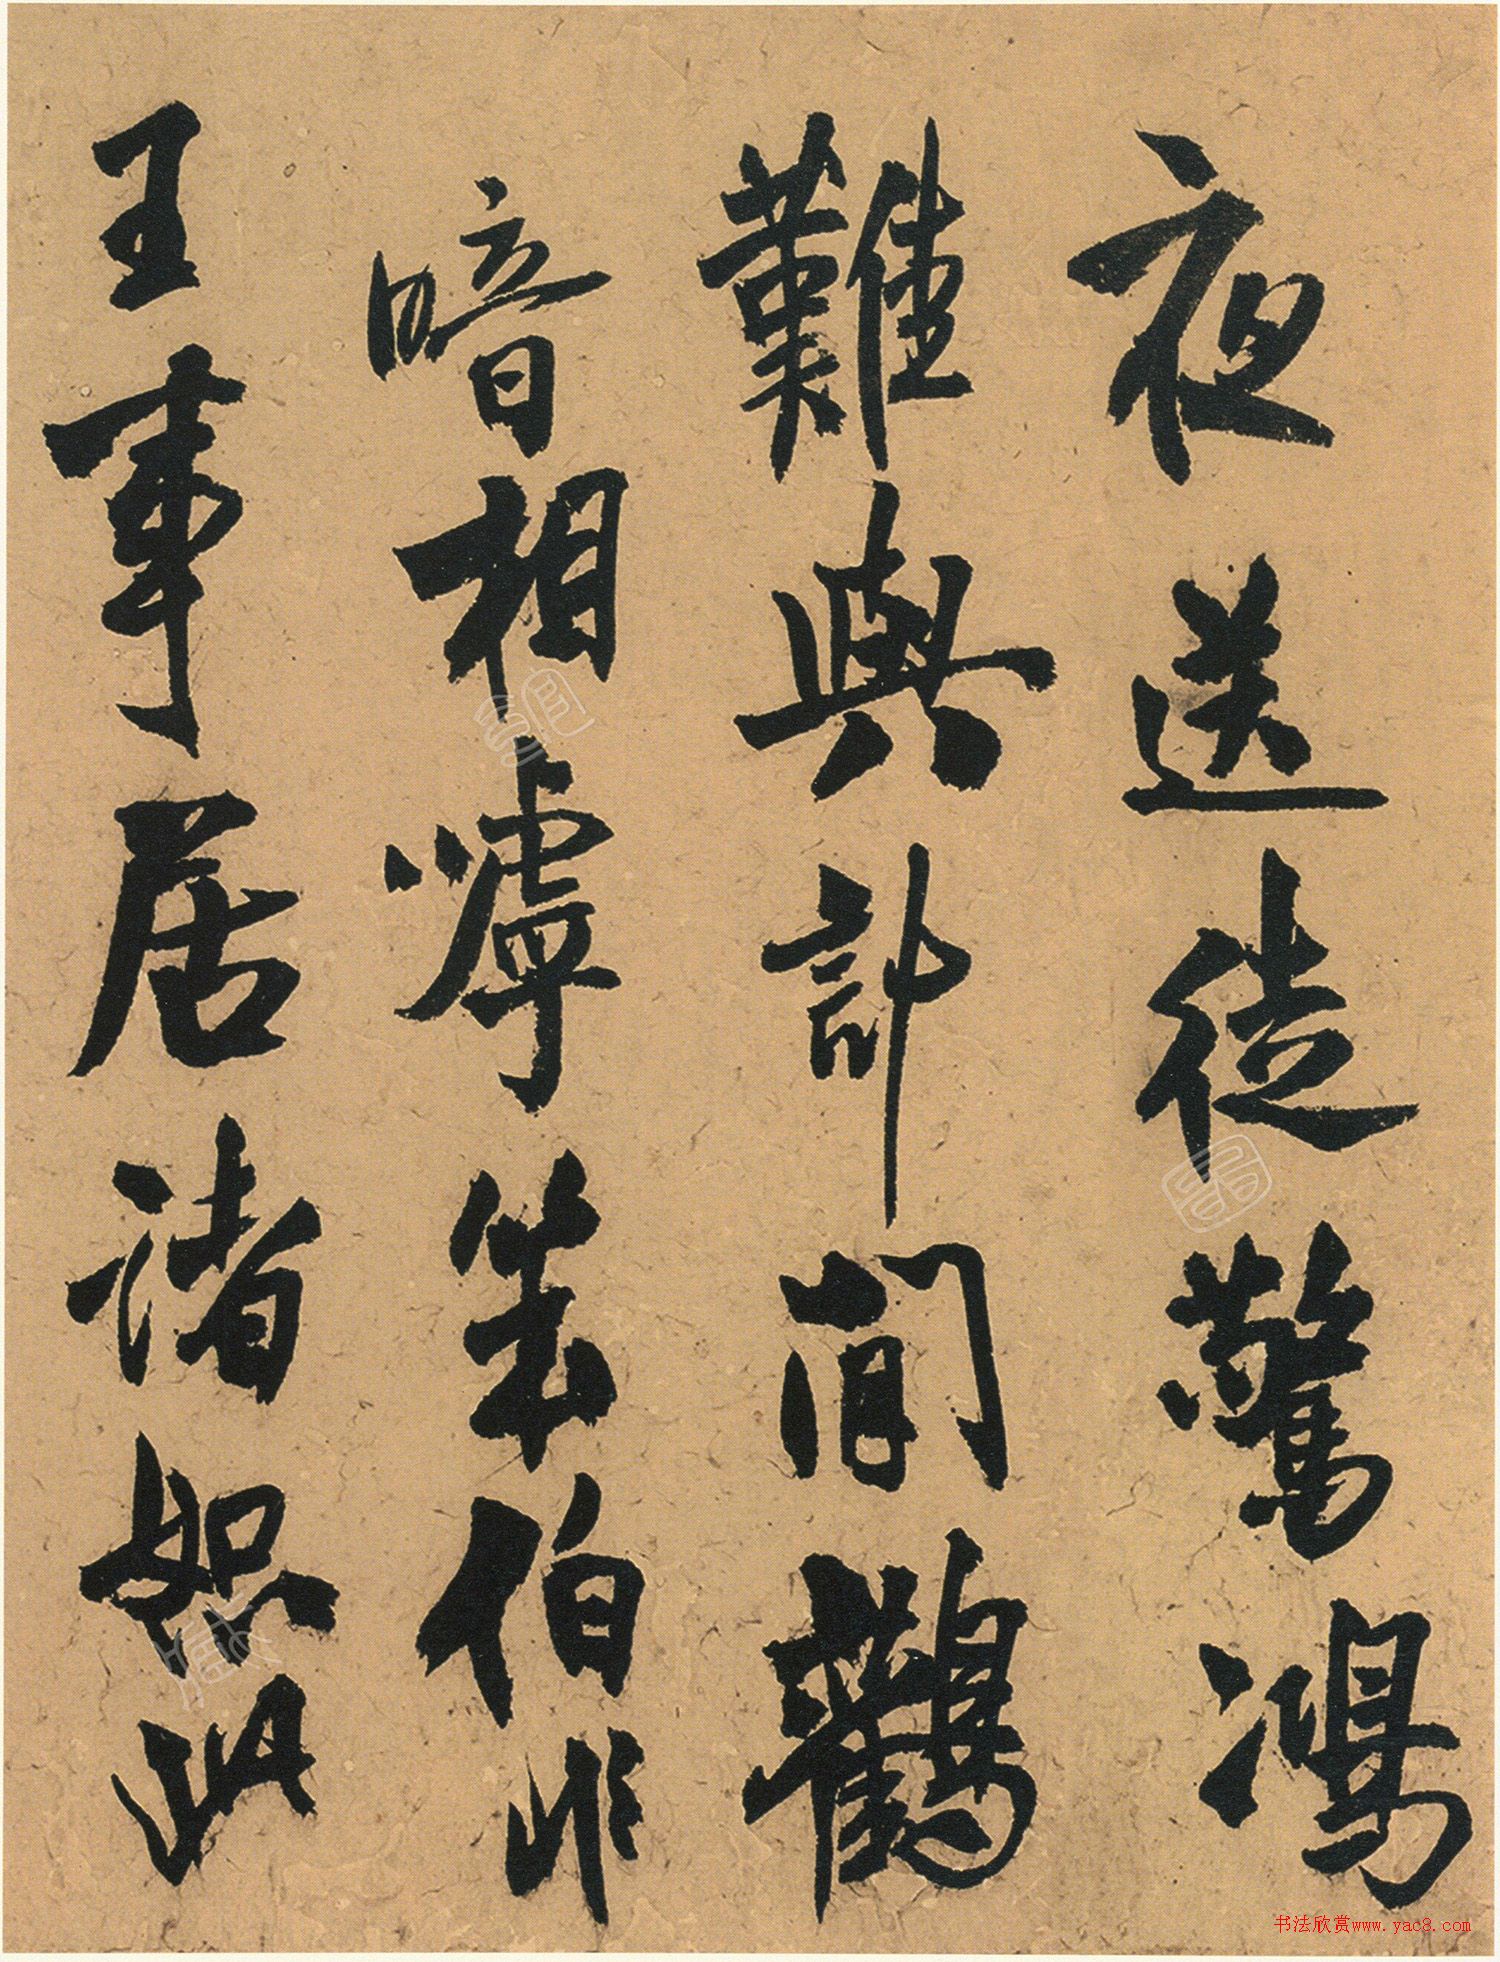 夜送徒驚鴻
難與計閒鸛
暗相嘑伯非
王事居諸如此
书法欣赏www.yac8.com